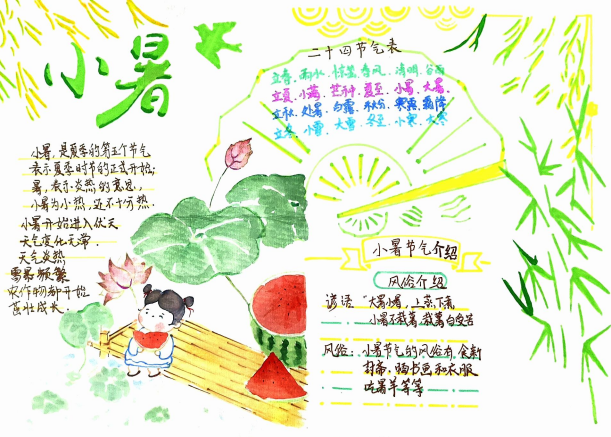 小暑
小暑，是夏季的第五个节气
表示夏季时节的正式开始；
暑，表示炎热的意思，
小暑为小热，还不十分热.
小暑开始进入伏天
天气变化无常.
天气炎热
雷暴频繁
农作物都开始
茁壮成长.
二十四节气表
立春. 雨水. 惊蛰. 春风. 清明. 谷雨
立夏. 小满. 芒种. 夏至. 小暑. 大暑.
立秋. 处暑. 白露. 秋分. 寒露. 霜降
立冬. 小雪. 大雪. 冬至. 小寒. 大寒
小暑节气介绍
风俗介绍
谚语：“大暑小暑，上蒸下煮
小暑不栽薯，栽薯白受苦
风俗：小暑节气的风俗有 食新
封斋，晒书画和衣服
吃暑羊等等